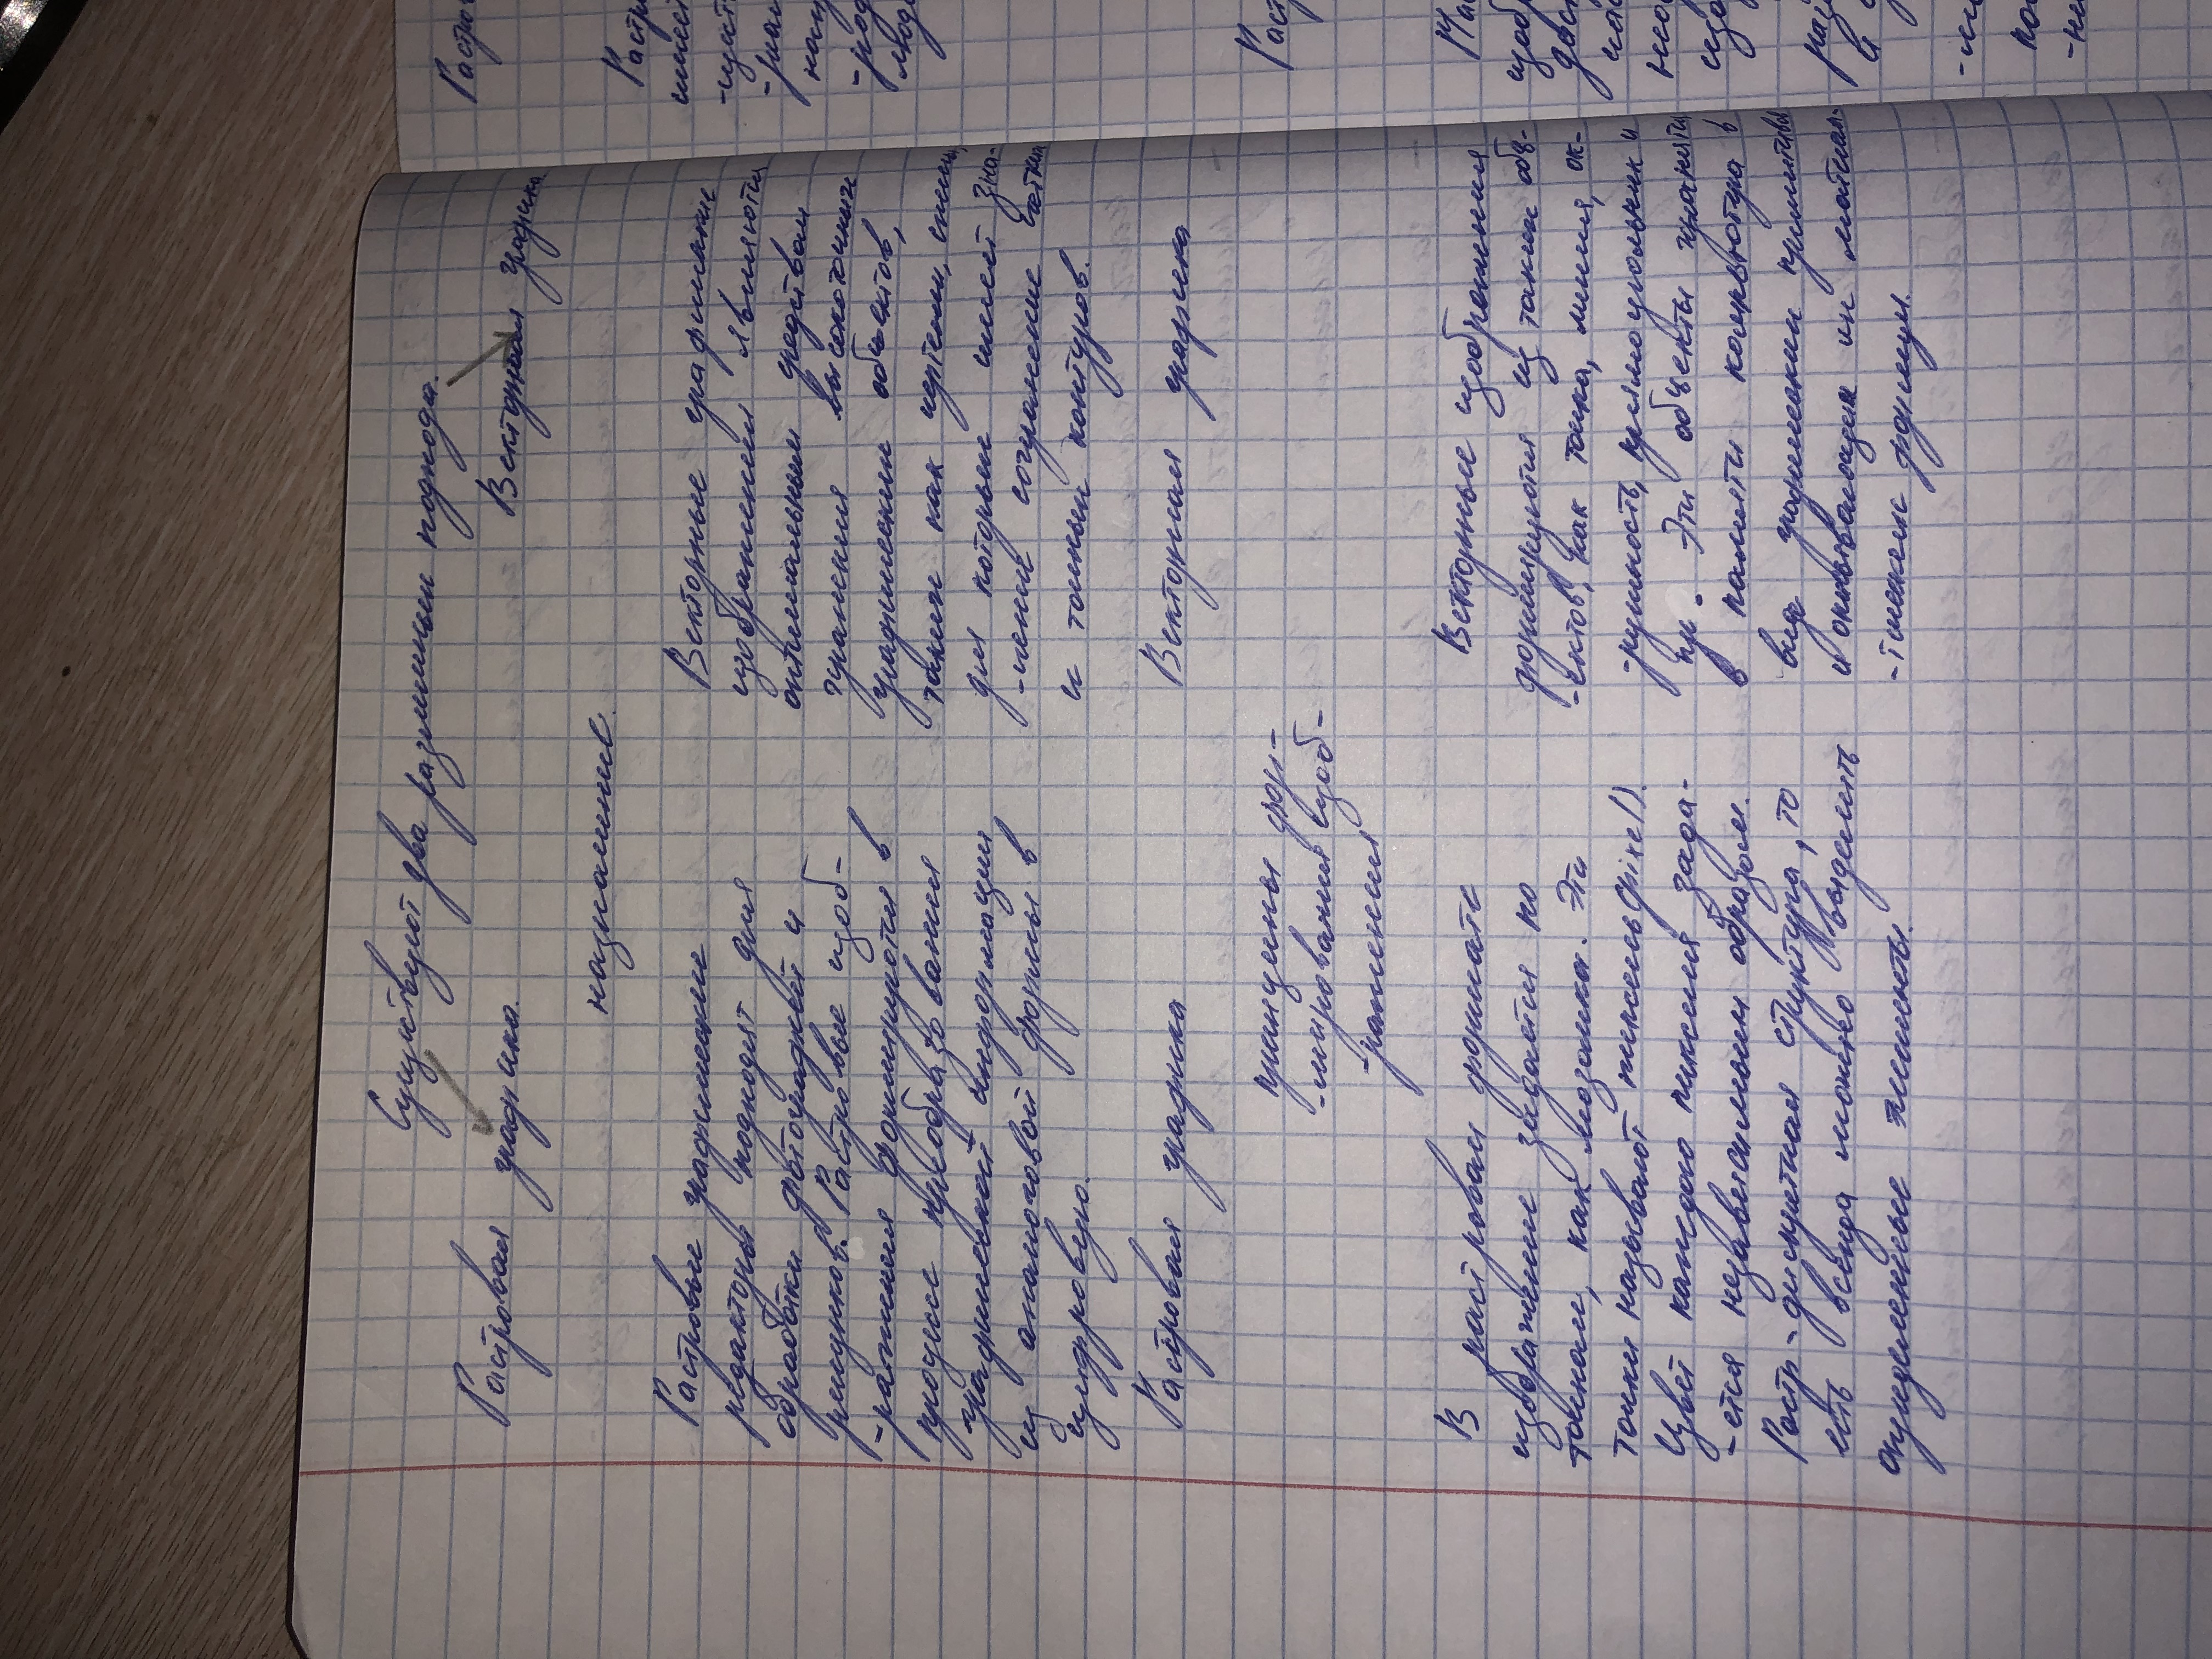 Существуют два различных подхода.
Растровая графика.
Векторная графика
назначение.
Растровые графические
редакторы подходят для
обработки фотографий и
рисунков. Растровые изоб-
-ражения формируются в
процессе преобразования
графической информации
из аналоговой формы в
цифровую.
Векторные графические
изображения являются
оптимальным средством
хранения высокоточных
графических объектов,
таких как чертежи, схемы,
для которых имеет зна-
-чение сохранение четких
и точных контуров.
Растровая графика
Векторная графика
принципы фор-
-мирования изоб-
-ражения
В растровом формате
изображение задаётся по
точкам, как мозаика. Эти
точки называют пиксель (pixel).
Цвет каждого пикселя зада-
-ется независимым образом.
Растр-дискретная структура, то
есть всегда можно выделить
определенные элементы.
Векторные изображения
формируются из таких объ-
-ектов, как точка, линия, ок-
-ружность, прямоугольник и
пр. Эти объекты хранятся
в памяти компьютера в
виде графических примитивов
и описывающих их матема-
-тических формул.
Растр
Раст